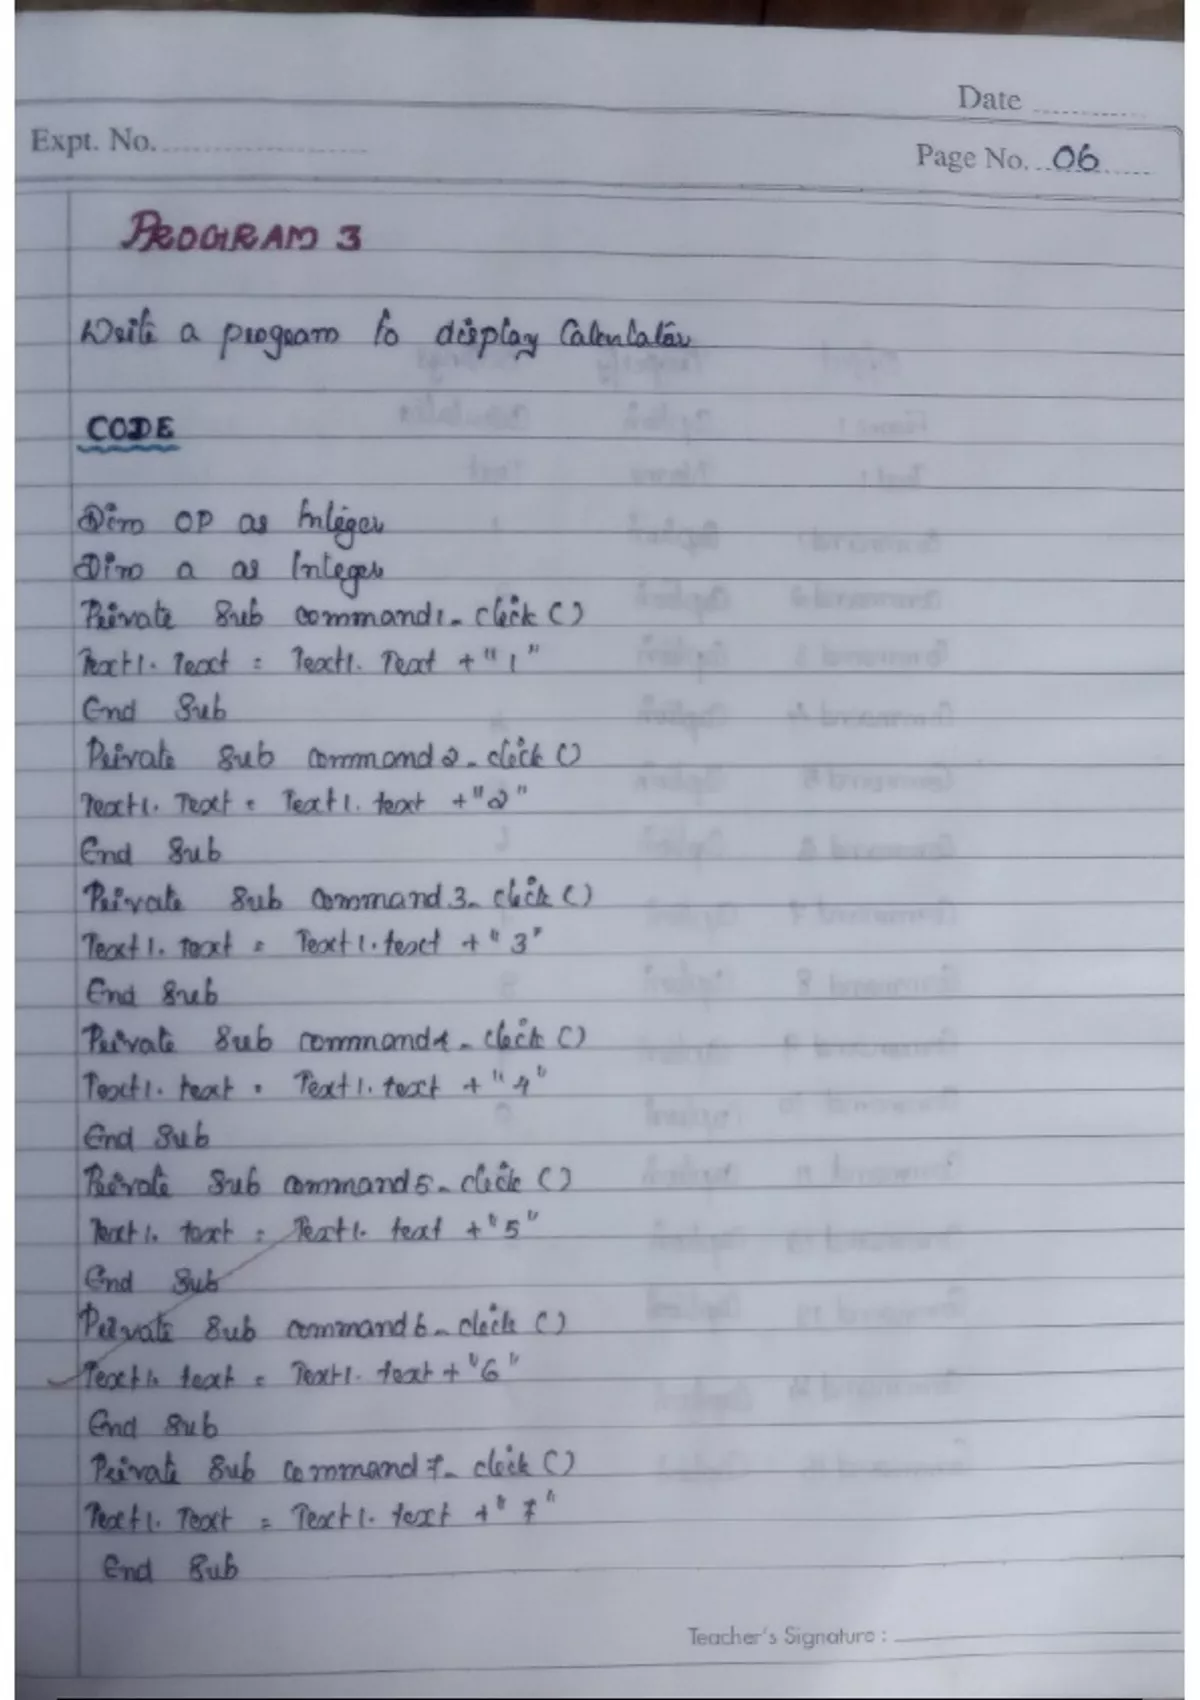 Date
Expt. No.
Page No. 06
PROGRAM 3
Write a program to display Calculator
CODE
Dim OP as Integer
Dim a as Integer
Private Sub command1_click ()
Text1. Text = Text1. Text + "1"
End Sub
Private Sub command2_click ()
Text1. Text = Text1. text + "2"
End Sub
Private Sub command3_click ()
Text1. text = Text1. text + "3"
End Sub
Private Sub command4_click ()
Text1. text = Text1. text + "4"
End Sub
Private Sub command5_click ()
Text1. text = Text1. text + "5"
End Sub
Private Sub command6_click ()
Text1. text = Text1. text + "6"
End Sub
Private Sub command7_click ()
Text1. Text = Text1. text + "7"
End Sub
Teacher's Signature :